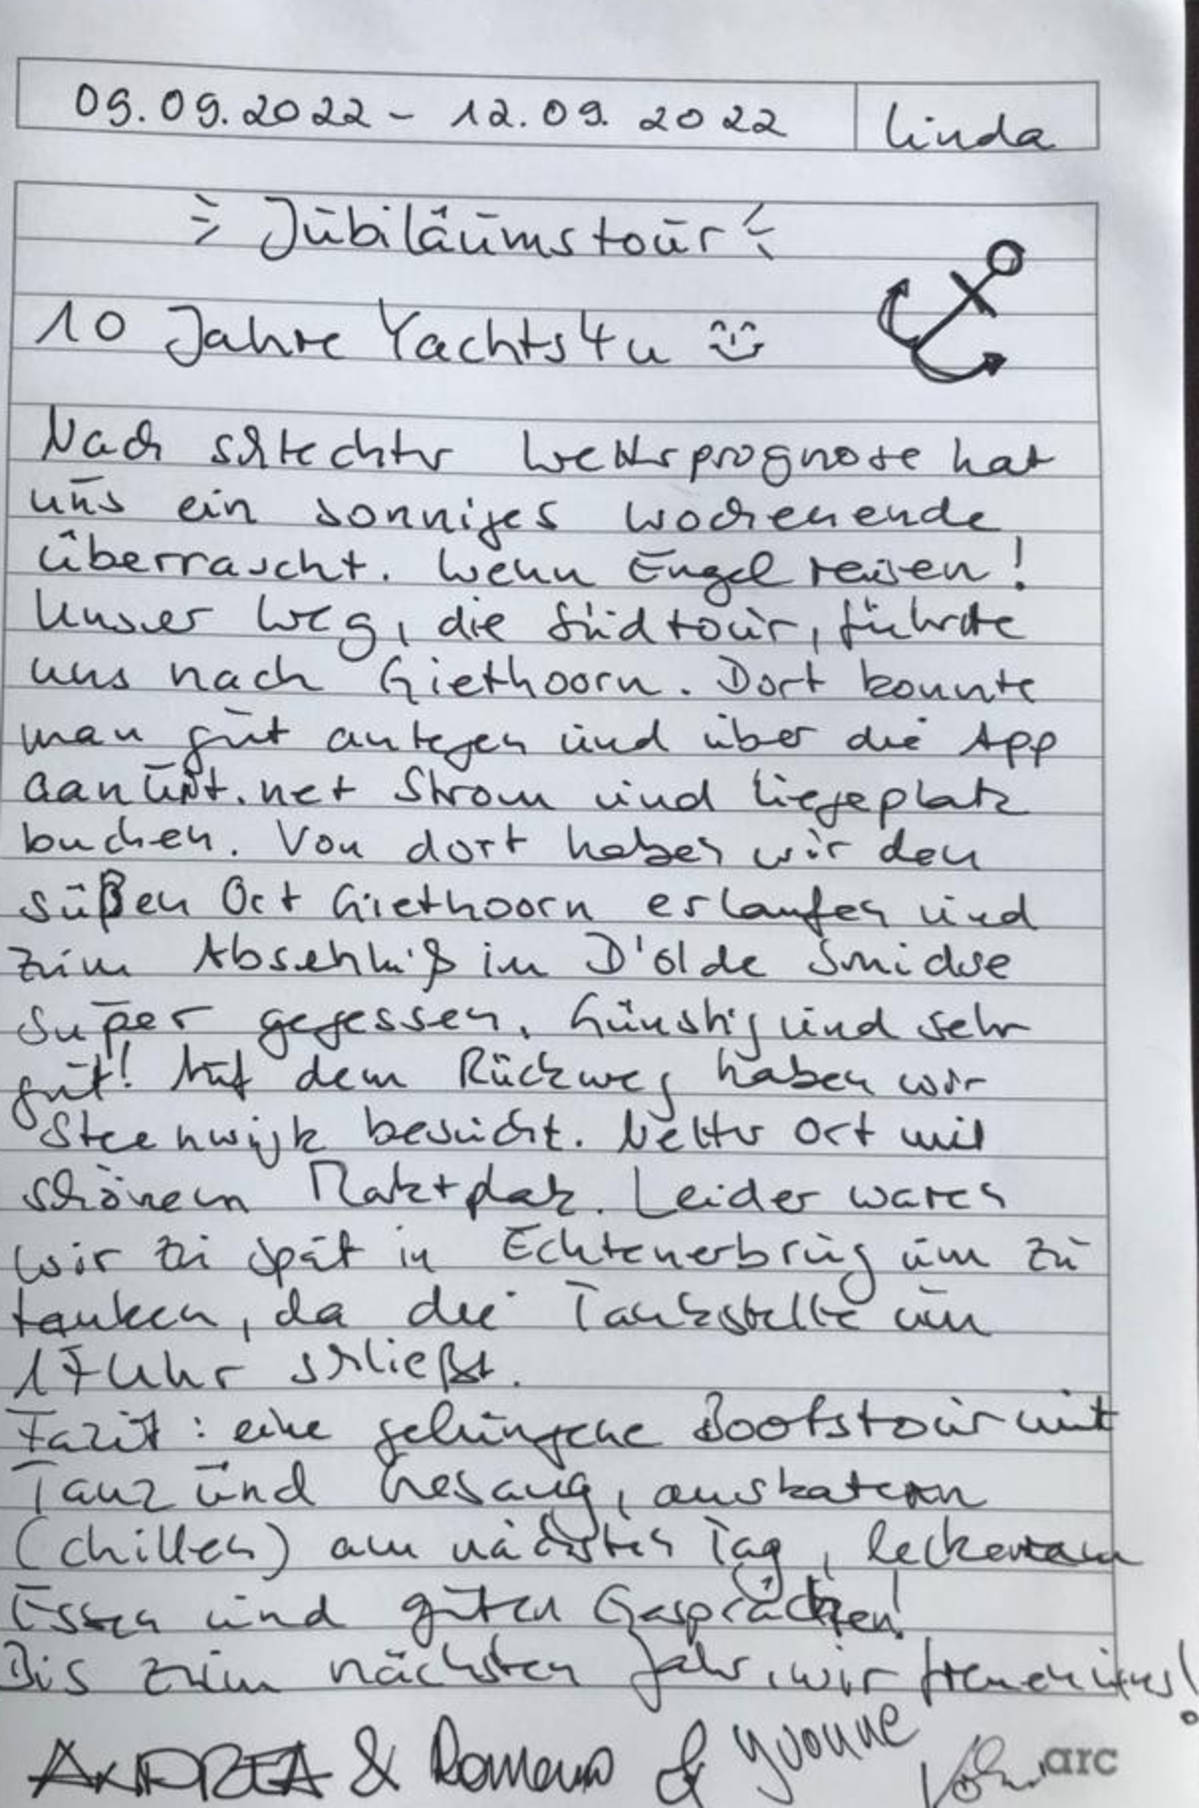 09.09.2022 - 12.09.2022 Linda
Jubiläumstour
10 Jahre Yachts4u
Nach schlechter Wetterprognose hat
uns ein sonniges Wochenende
überrascht. Wenn Engel reisen!
Unser Weg, die Südtour, führte
uns nach Giethoorn. Dort konnte
man gut anlegen und über die App
aanUit.net Strom und Liegeplatz
buchen. Von dort haben wir den
süßen Ort Giethoorn erlaufen und
zum Abschluß im D'olde Smidse
super gegessen. Günstig und sehr
gut! Auf dem Rückweg haben wir
Steenwijk besucht. Netter Ort mit
schönem Marktplatz. Leider waren
wir zu spät in Echtenerbrug um zu
tanken, da die Tankstelle um
17 Uhr schließt.
Fazit: eine gelungene Bootstour mit
Tanz und Gesang, auskatern
(chillen) am nächsten Tag, leckerem
Essen und guten Gesprächen!
Bis zum nächsten Jahr, wir freuen uns!
ANDREA & Romana & Yvonne
arc